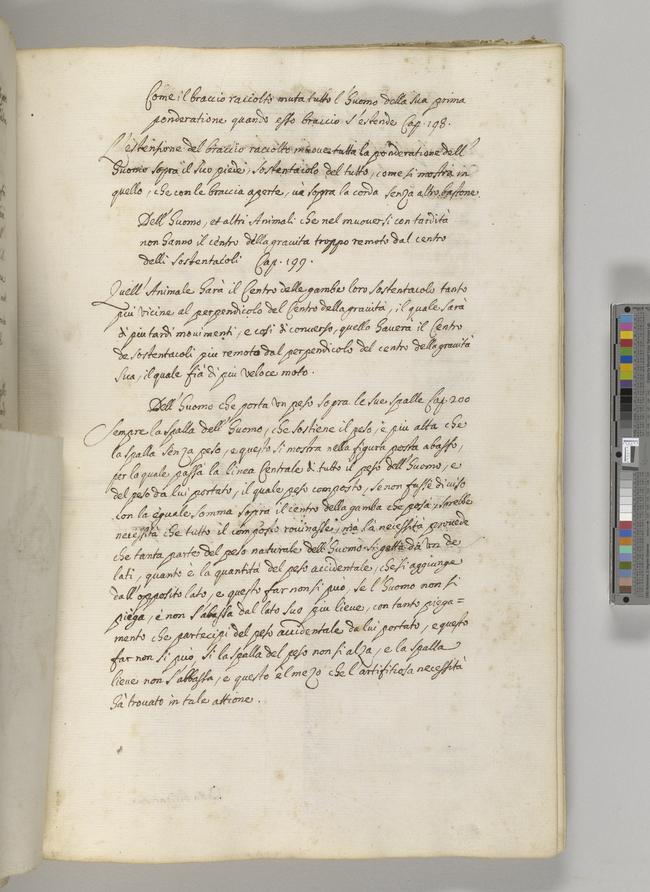 Come il braccio raccolto muta tutto l'huomo della sua prima
ponderatione quando esso braccio s'estende Cap. 198.
L'estensione del braccio raccolto muove tutta la ponderatione dell'
huomo sopra il suo piede, sostentacolo del tutto, come si mostra in
quello, che con le braccia aperte, và sopra la corda senza altro bastone.
Dell'huomo, et altri Animali che nel muoversi con tardità
non hanno il centro della gravità troppo remoto dal centro
delli sostentacoli Cap. 199.
Quell'Animale harà il Centro delle gambe loro sostentacolo tanto
più vicine al perpendicolo del Centro della gravità, il quale sarà
di più tardi movimenti, e cosi di converso, quello haverà il Centro
de sostentacoli più remoto dal perpendicolo del centro della gravità
sua, il quale fia di più veloce moto.
Dell'huomo che porta un peso sopra le sue spalle Cap. 200
Sempre la spalla dell'huomo, che sostiene il peso, è più alta che
la spalla senza peso, e questo si mostra nella figura posta abasso,
per la quale passa la linea Centrale di tutto il peso dell'huomo, e
del peso da lui portato, il quale peso composto, se non fusse diviso
con la equale somma sopra il centro della gamba che posa, sarebbe
necessità che tutto il composto rovinasse, mà la necessità provede
che tanta parte del peso naturale dell'huomo si getta da un de
lati, quanto è la quantità del peso accidentale, che si aggiunge
dall'opposito lato, e questo far non si può, se l'huomo non si
piega, e non s'abassa dal lato suo più lieve, con tanto piega=
mento che partecipi del peso accidentale da lui portato, e questo
far non si può, si la spalla del peso non si alza, e la spalla
lieve non s'abbassa, e questo è l mezo che l'artifitiosa necessità
hà trovato in tale attione.